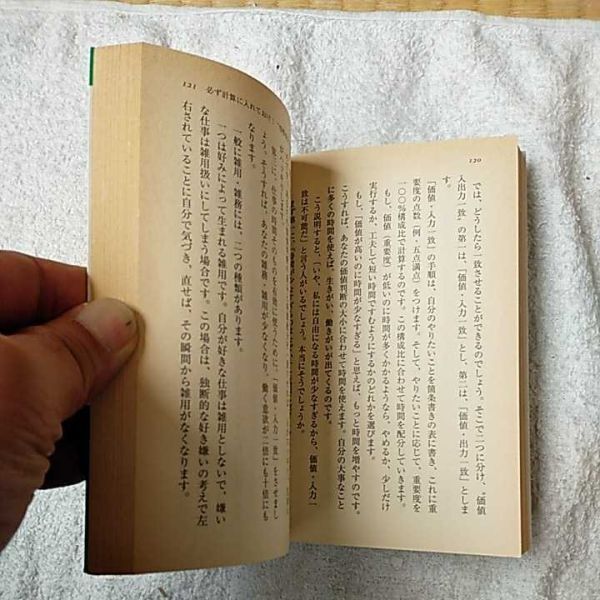 120
では、どうしたら一致させることができるのでしょう。そこで二つに分け、“価値
入出力一致”の第一は、「価値・入力一致」とし、第二は、「価値・出力一致」としま
す。
「価値・入力一致」の手順は、自分のやりたいことを箇条書きの表に書き、これに重
要度の点数(例・五点満点)をつけます。そして、やりたいことに応じて、重要度を
一〇〇%構成比で計算するのです。この構成比に合わせて時間を配分していきます。
もし、価値(重要度)が低いのに時間が多くかかるようなら、やめるか、少しだけ
実行するか、工夫して短い時間ですむようにするかのどれかを選びます。
もし、「価値が高いのに時間が少なすぎる」と思えば、もっと時間を増やすのです。
こうすれば、あなたの価値判断の大小に合わせて時間を使えます。自分の大事なこと
に多くの時間を使えば、生きがい、働きがいが出てくるのです。
こう説明すると、「いや、私には自由になる時間が少なすぎるから、価値・入力一
致は不可能だ」と言う人がいるでしょう。本当にそうでしょうか。
121 必ず計算に入れておけ
第三に、仕事の時間そのものを有効に使うために、「価値・入力一致」をさせまし
ょう。そうすれば、あなたの雑務・雑用が少なくなり、働く意欲が二倍にも十倍にも
なります。
一般に雑用・雑務には、二つの種類があります。
一つは好みによって生まれる雑用です。自分が好きな仕事は雑用としないで、嫌い
な仕事は雑用扱いにしてしまう場合です。この場合は、独断的な好き嫌いの考えで左
右されていることに自分で気づき、直せば、その瞬間から雑用がなくなります。